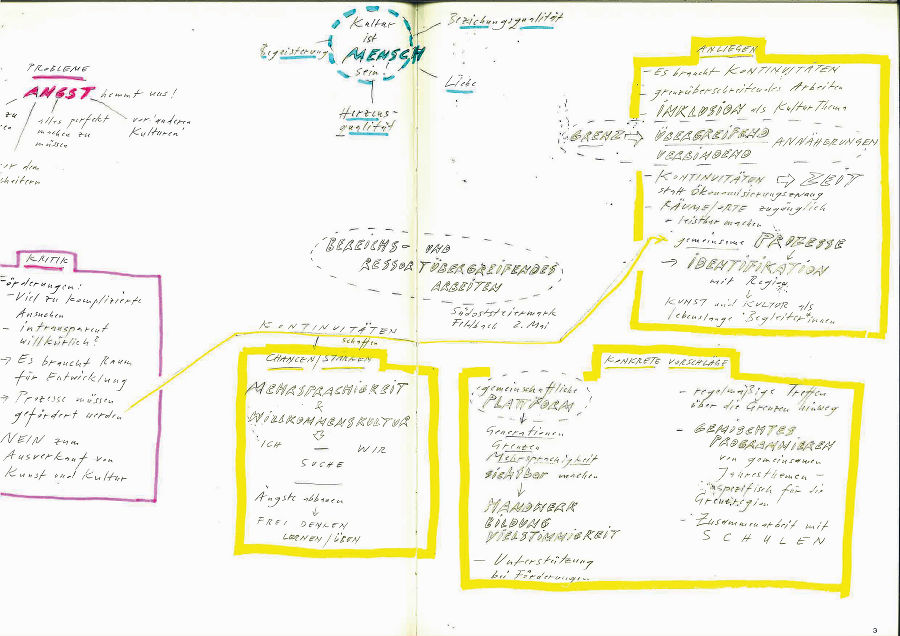 Kultur
ist
MENSCH
sein!
Begeisterung
Beziehungsqualität
Liebe
Herzens-
qualität
PROBLEME
ANGST hemmt uns!
alles perfekt
machen zu
müssen
vor 'anderen
Kulturen'
zu
KRITIK
Förderungen:
- Viel zu komplizierte
Ansuchen
- intransparent
willkürlich?
→ Es braucht Raum
für Entwicklung
→ Prozesse müssen
gefördert werden
NEIN zum
Ausverkauf von
Kunst und Kultur
BEREICHS- UND
RESSORTÜBERGREIFENDES
ARBEITEN
Südoststeiermark
Fehlbach 2. Mai
KONTINUITÄTEN
schaffen
CHANCEN/STÄRKEN
MEHRSPRACHIGKEIT
&
WILLKOMMENSKULTUR
ICH — WIR
SUCHE
Ängste abbauen
↓
FREI DENKEN
LERNEN/ÜBEN
ANLIEGEN
- Es braucht KONTINUITÄTEN
- grenzüberschreitendes Arbeiten
- INKLUSION als KulturThema
GRENZ ⇒ ÜBERGREIFEND
VERBINDEND
ANNÄHERUNGEN
- KONTINUITÄTEN ⇒ ZEIT
statt Ökonomisierungszwang
- RÄUME/ORTE zugänglich
+ leistbar machen
gemeinsame PROZESSE
→ IDENTIFIKATION
mit Region
↓
KUNST und KULTUR als
lebenslange Begleiter*innen
KONKRETE VORSCHLÄGE
gemeinschaftliche
PLATTFORM
↓
Generationen
Grenzen
Mehrsprachigkeit
sichtbar machen
↓
HANDWERK
BILDUNG
VIELSTIMMIGKEIT
- Unterstützung
bei Förderungen
- regelmäßige Treffen
über die Grenzen hinweg
- GEMISCHTES
PROGRAMMIEREN
von gemeinsamen
Jahresthemen -
spezifisch für die
Grenzregion
- Zusammenarbeit mit
SCHULEN
3